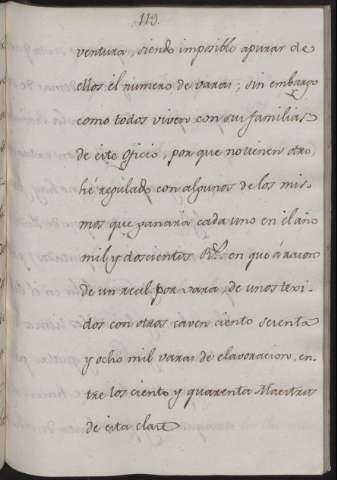 119.
ventura, siendo imposible apurar de
ellos él numero de varas; sin embargo
como todos viven con sus familias
de este oficio, por que no tienen otro,
hé regulado con algunos de los mis-
mos que ganara cada uno en él año
mil y doscientos R.s en que á razon
de un real por vara, de unos texi-
dos con otros caven ciento sesenta
y ocho mil varas de elavoracion, en-
tre los ciento y quarenta Maestros
de esta clase